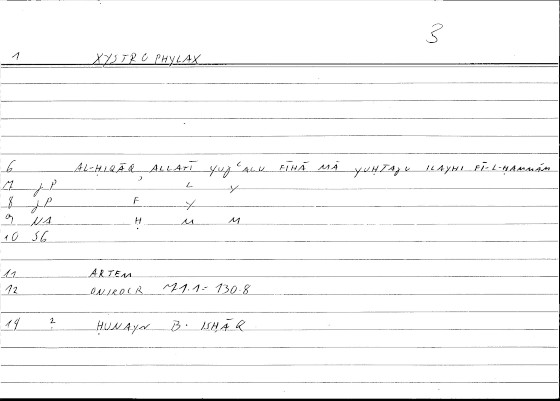 3
1 XYSTROPHYLAX
6 AL-HIQĀQ, ALLATĪ YUǦʿALU FĪHĀ MĀ YUḤTAǦU ILAYHI FĪ-L-ḤAMMĀM
7 JP L Y
8 JP F Y
9 NA Ḥ M M
10 SG
11 ARTEM
12 ONIROCR 71.1 = 130.8
14 2 ḤUNAYN B. ISḤĀQ